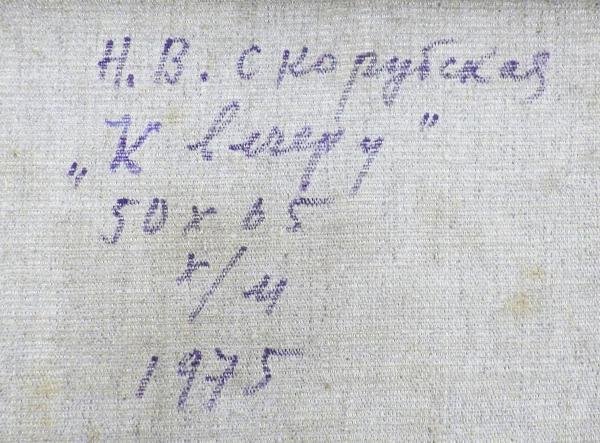 Н.В. Скорубская
„К вечеру”
50 х 65
х/м
1975